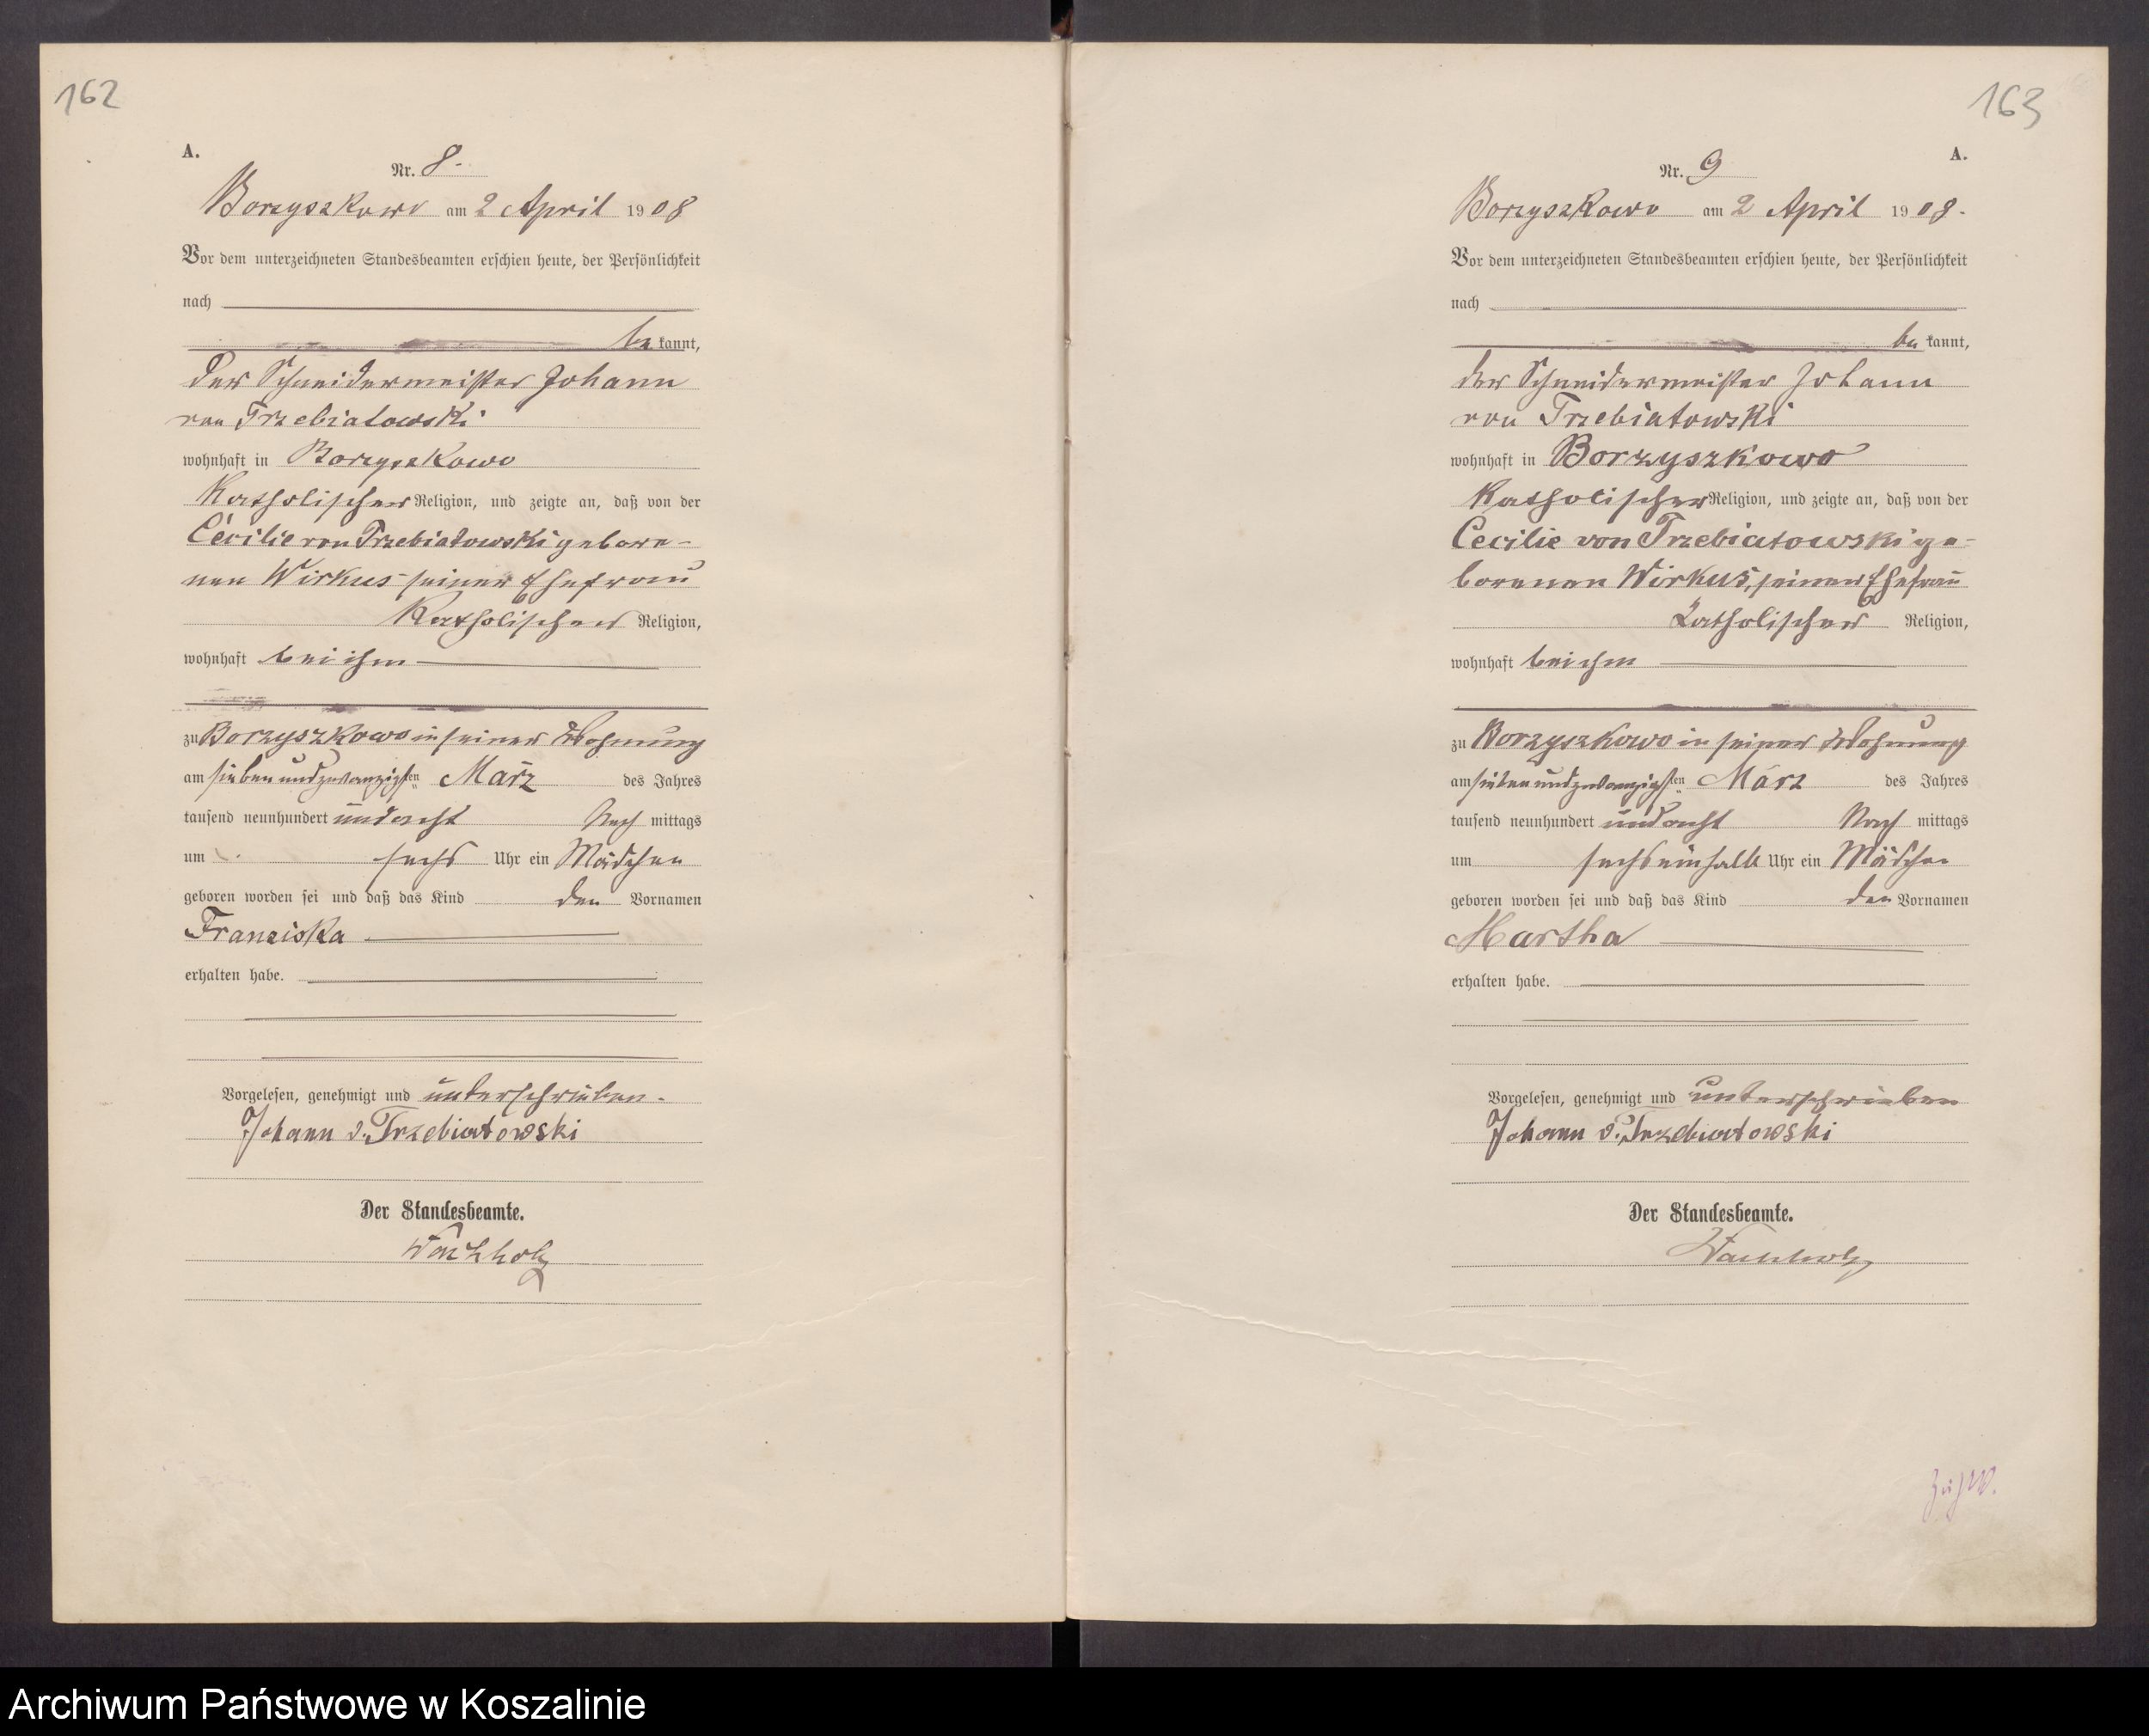 162
A.
Nr. 8.
Borzyszkowo am 2 April 1908
Vor dem unterzeichneten Standesbeamten erschien heute, der Persönlichkeit
nach
be kannt,
der Schneidermeister Johann
von Trzebiatowski
wohnhaft in Borzyszkowo
Katholischer Religion, und zeigte an, daß von der
Cecilie von Trzebiatowski gebore-
nen Wirkus seiner Ehefrau
Katholischer Religion,
wohnhaft bei ihm
zu Borzyszkowo in seiner Wohnung
am sieben und zwanzigsten März des Jahres
tausend neunhundert und acht Nach mittags
um sechs Uhr ein Mädchen
geboren worden sei und daß das Kind den Vornamen
Franziska
erhalten habe.
Vorgelesen, genehmigt und unterschrieben.
Johann v. Trzebiatowski
Der Standesbeamte.
Wachholz
163
A.
Nr. 9
Borzyszkowo am 2 April 1908.
Vor dem unterzeichneten Standesbeamten erschien heute, der Persönlichkeit
nach
be kannt,
der Schneidermeister Johann
von Trzebiatowski
wohnhaft in Borzyszkowo
Katholischer Religion, und zeigte an, daß von der
Cecilie von Trzebiatowski ge-
borenen Wirkus, seiner Ehefrau
Katholischer Religion,
wohnhaft bei ihm
zu Borzyszkowo in seiner Wohnung
am sieben und zwanzigsten März des Jahres
tausend neunhundert und acht Nach mittags
um sechseinhalb Uhr ein Mädchen
geboren worden sei und daß das Kind den Vornamen
Martha
erhalten habe.
Vorgelesen, genehmigt und unterschrieben
Johann v. Trzebiatowski
Der Standesbeamte.
Wachholz
Archiwum Państwowe w Koszalinie